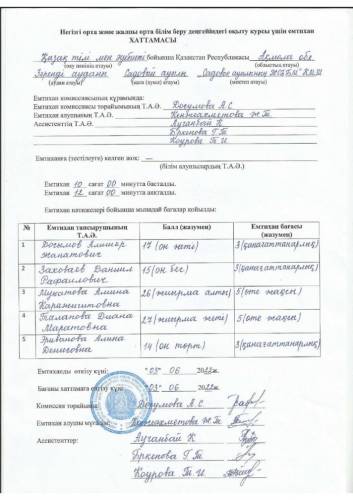 Негізгі орта және жалпы орта білім беру деңгейіндегі оқыту курсы үшін емтихан
ХАТТАМАСЫ
Қазақ тілі мен әдебиеті бойынша Қазақстан Республикасы Ақмола обл
(оқу пәнінің атауы) (облыстың атауы)
Зеренді ауданы Садовый ауылы
(ауданның атауы) (қала (ауыл) атауы) (мектептің атауы)
Емтихан комиссиясының құрамында:
Емтихан комиссиясы төрайымының Т.А.Ә. Досумова А.С
Емтихан алушының Т.А.Ә. Кенжеахметова Ж.Т.
Ассистенттің Т.А.Ә. Ауганбай К
Бркенова Г.Т.
Коурова Т.И
Емтиханға (тестілеуге) келген жоқ: —
(білім алушылардың Т.А.Ә.)
Емтихан 10 сағат 00 минутта басталды.
Емтихан 12 сағат 00 минутта аяқталды.
Емтихан нәтижелері бойынша мынадай бағалар қойылды:
№ Емтихан тапсырушының Т.А.Ә. Балл (жазумен) Емтихан бағасы (жазумен)
1 Досымов Алишер Жанатович 17 (он жеті) 3 (қанағаттанарлық)
2 Даниил Рафаилович 15 (он бес) 3 (қанағаттанарлық)
3 Мукатова Амина 26 (жиырма алты) 5 (өте жақсы)
4 Диана Маратовна 27 (жиырма жеті) 5 (өте жақсы)
5 Алина Денисовна 14 (он төрт) 3 (қанағаттанарлық)
Емтиханды өткізу күні: "03" 06 2022ж.
Бағаны хаттамаға енгізу күні: "03" 06 2022ж.
Комиссия төрайымы: Досумова А.С
Емтихан алушы мұғалім: Кенжеахметова Ж.Т
Ассистенттер: Ауганбай К
Бркенова Г.Т.
Коурова Т.И.